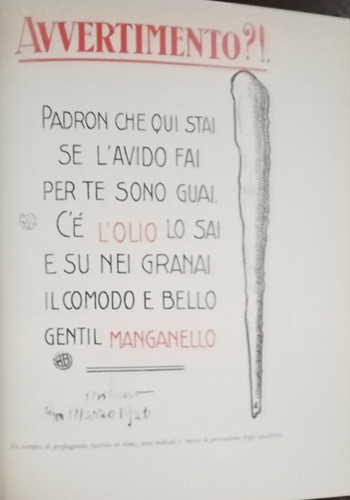 AVVERTIMENTO?!.
PADRON CHE QUI STAI
SE L'AVIDO FAI
PER TE SONO GUAI.
C'É L'OLIO LO SAI
E SU NEI GRANAI
IL COMODO E BELLO
GENTIL MANGANELLO
Marzo 1926
Un esempio di propaganda fascista in rima, sono indicati i mezzi di persuasione degli squadristi.